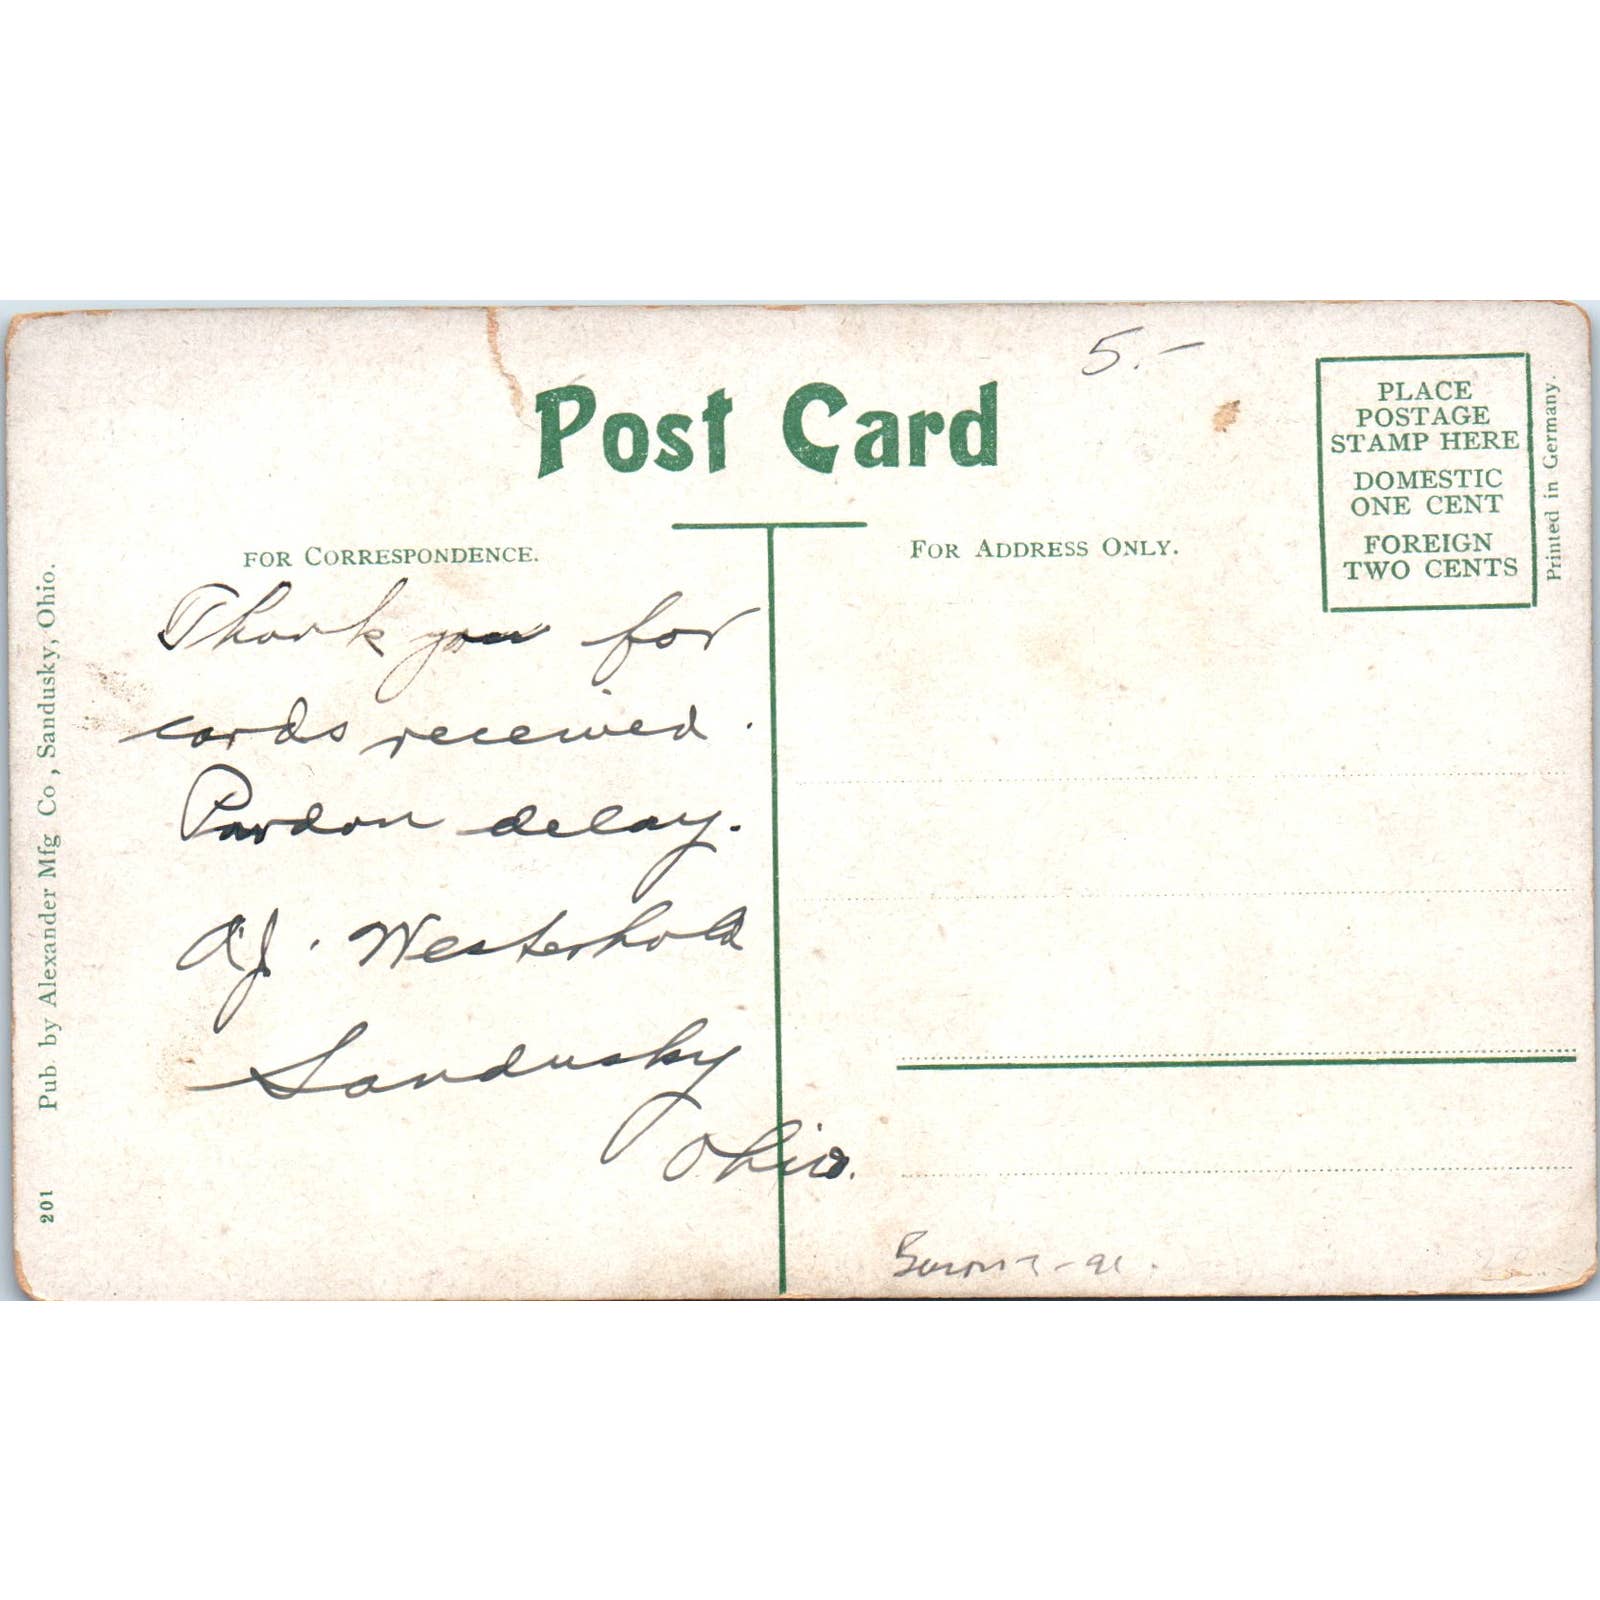 5.-
Post Card
PLACE
POSTAGE
STAMP HERE
DOMESTIC
ONE CENT
FOREIGN
TWO CENTS
Printed in Germany.
FOR CORRESPONDENCE.
FOR ADDRESS ONLY.
Thank you for
cards received.
Pardon delay.
A.J. Westerhold
Sandusky
Ohio.
201 Pub. by Alexander Mfg Co., Sandusky, Ohio.